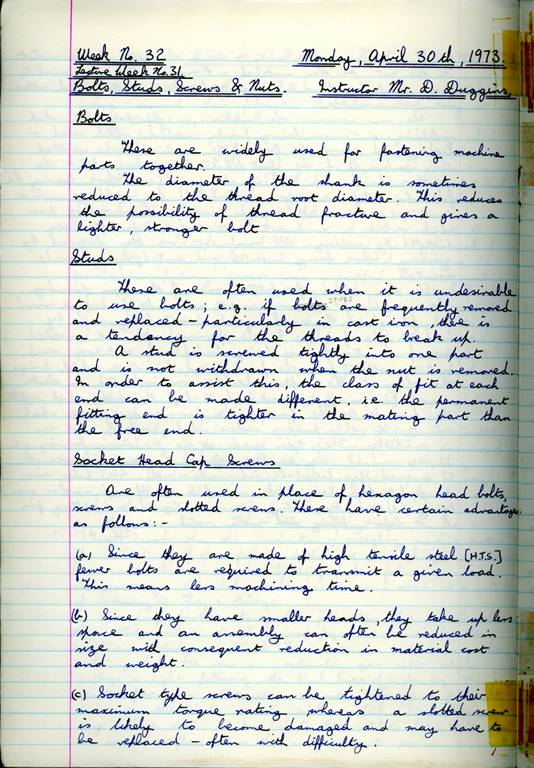 Week No. 32
Monday, April 30th, 1973.
Lecture Week No. 31.
Bolts, Studs, Screws & Nuts.
Instructor Mr. D. Duggins.
Bolts
These are widely used for fastening machine
parts together.
The diameter of the shank is sometimes
reduced to the thread root diameter. This reduces
the possibility of thread fracture and gives a
lighter, stronger bolt
Studs
These are often used when it is undesirable
to use bolts; e.g. if bolts are frequently removed
and replaced – particularly in cast iron, there is
a tendancy for the threads to break up.
A stud is screwed tightly into one part
and is not withdrawn when the nut is removed.
In order to assist this, the class of fit at each
end can be made different, i.e. the permanent
fitting end is tighter in the mating part than
the free end.
Socket Head Cap Screws
Are often used in place of hexagon head bolts,
screws and slotted screws. These have certain advantages
as follows:-
(a) Since they are made of high tensile steel [H.T.S.]
fewer bolts are required to transmit a given load.
This means less machining time.
(b) Since they have smaller heads, they take up less
space and an assembly can often be reduced in
size with consequent reduction in material cost
and weight.
(c) Socket type screws can be tightened to their
maximum torque rating whereas a slotted screw
is likely to become damaged and may have to
be replaced – often with difficulty.